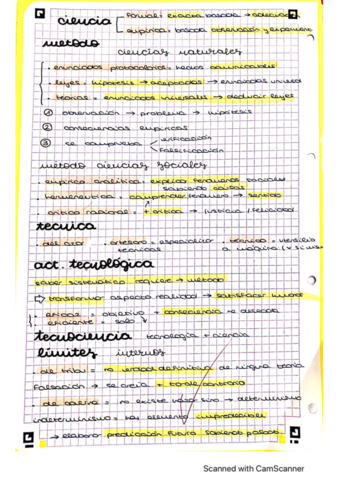 ciencia
Formal = exacta basada →
empírica = basada observación y experimento
metodo
ciencias naturales
. enunciados protocolarios = hechos comunicables
. leyes = hipótesis → aceptadas → enunciados
. teorías = enunciados universales → deducir leyes
① observación → problema → hipótesis
② consecuencias empíricas
③ se comprueba verificación
falsificación
método ciencias sociales
. empírico analítica = explica fenómenos sociales
sabiendo causas
. hermenéutica = comprender fenómeno → sentido
. crítico racional = + crítica → justicia / felicidad
tecnica
. del azar . artesano = especializar . técnico =
técnicas a máquina
act. tecnológica
saber sistemático requiere → método
⇨ transformar aspecto realidad → satisfacer
. eficaz = objetivo + consecuencia se deseada
. eficiente = solo
tecnociencia tecnología + ciencia
límites internos
. de = no verdad definitiva de ninguna teoría
Falsación → se creía + tarde contrario
. de = no existe → determinismo
indeterminismo = hay elemento impredecible
→ elaborar predicación futura sabiendo pasado
Scanned with CamScanner